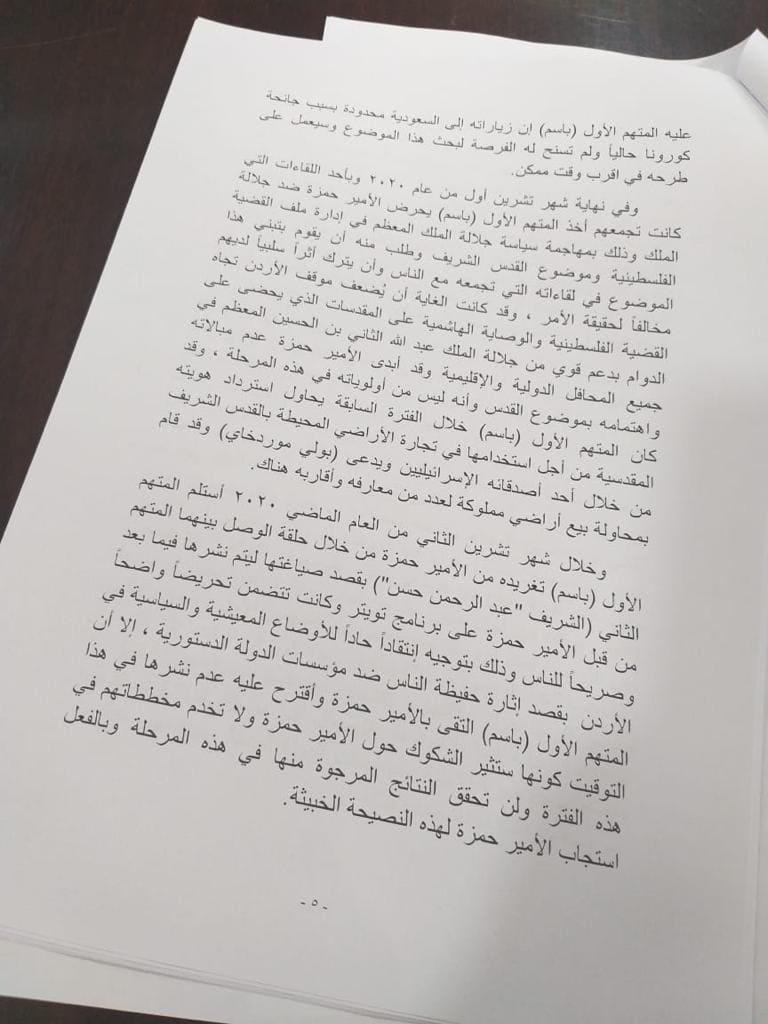 عليه المتهم الأول (باسم) إن زياراته إلى السعودية محدودة بسبب جائحة
كورونا حالياً ولم تسنح له الفرصة لبحث هذا الموضوع وسيعمل على
طرحه في اقرب وقت ممكن.
وفي نهاية شهر تشرين أول من عام ٢٠٢٠ وبأحد اللقاءات التي
كانت تجمعهم أخذ المتهم الأول (باسم) يحرض الأمير حمزة ضد جلالة
الملك وذلك بمهاجمة سياسة جلالة الملك المعظم في إدارة ملف القضية
الفلسطينية وموضوع القدس الشريف وطلب منه أن يقوم بتبني هذا
الموضوع في لقاءاته التي تجمعه مع الناس وأن يترك أثراً سلبياً لديهم
مخالفاً لحقيقة الأمر ، وقد كانت الغاية أن يُضعف موقف الأردن تجاه
القضية الفلسطينية والوصاية الهاشمية على المقدسات الذي يحضى على
الدوام بدعم قوي من جلالة الملك عبد الله الثاني بن الحسين المعظم في
جميع المحافل الدولية والإقليمية وقد أبدى الأمير حمزة عدم مبالاته
واهتمامه بموضوع القدس وأنه ليس من أولوياته في هذه المرحلة ، وقد
كان المتهم الأول (باسم) خلال الفترة السابقة يحاول استرداد هويته
المقدسية من أجل استخدامها في تجارة الأراضي المحيطة بالقدس الشريف
من خلال أحد أصدقائه الإسرائيليين ويدعى (بولي موردخاي) وقد قام
بمحاولة بيع أراضي مملوكة لعدد من معارفه وأقاربه هناك.
وخلال شهر تشرين الثاني من العام الماضي ٢٠٢٠ أستلم المتهم
الأول (باسم) تغريده من الأمير حمزة من خلال حلقة الوصل بينهما المتهم
الثاني (الشريف "عبد الرحمن حسن") بقصد صياغتها ليتم نشرها فيما بعد
من قبل الأمير حمزة على برنامج تويتر وكانت تتضمن تحريضاً واضحاً
وصريحاً للناس وذلك بتوجيه إنتقاداً حاداً للأوضاع المعيشية والسياسية في
الأردن بقصد إثارة حفيظة الناس ضد مؤسسات الدولة الدستورية ، إلا أن
المتهم الأول (باسم) التقى بالأمير حمزة وأقترح عليه عدم نشرها في هذا
التوقيت كونها ستثير الشكوك حول الأمير حمزة ولا تخدم مخططاتهم في
هذه الفترة ولن تحقق النتائج المرجوة منها في هذه المرحلة وبالفعل
استجاب الأمير حمزة لهذه النصيحة الخبيثة.
- ٥ -